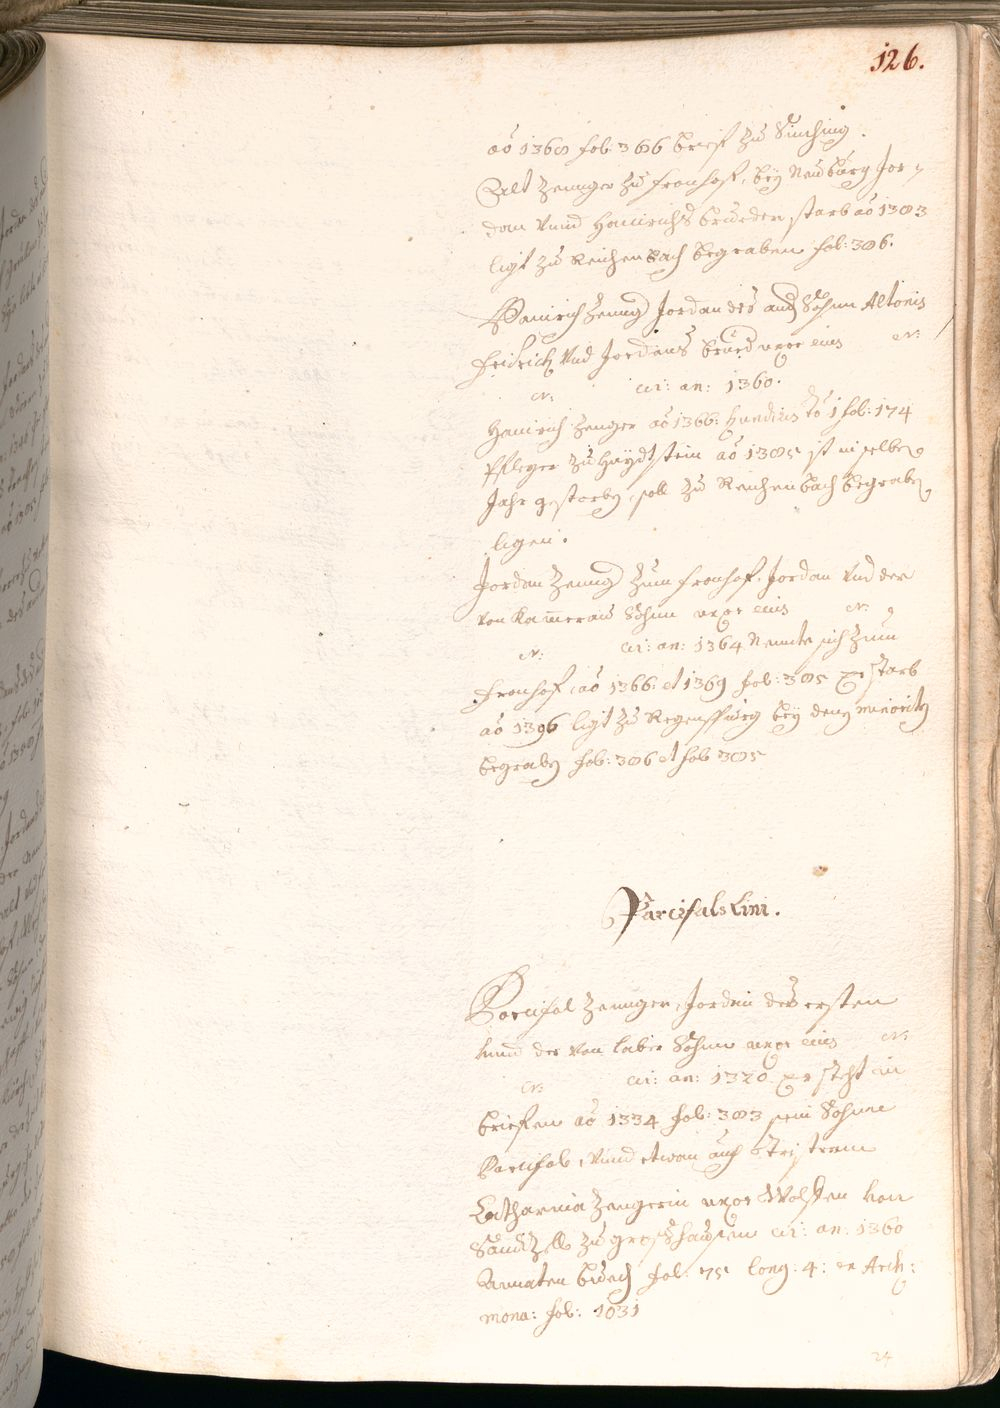 126.
aõ 1360 fol: 366 brieff zu Sinching.
Alt Zenger zu fronhof, beÿ Neuburg Jor¬
dan vnnd Hainrichs brueder starb aõ 1383
ligt zu Reichenbach begraben fol: 306.
Hainrich Zeng Jordan des and Sohnn Altonis
fridrich Vnd Jordans brued uxor eius N:
N: cir: an: 1360.
Hainrich Zenger aõ 1366: Hundius to 1 fol: 174
Pfleger zu Haÿdtstein aõ 1385 ist in selben
Jahr gestorben, soll zu Reichenbach begraben
ligen.
Jordan Zeng zum fronhof, Jordan Vnd der
von Kamerau Sohnn uxor eius N:
N: cir: an: 1364 Nennte sich zum
fronhof, aõ 1366: et 1369 fol: 305 er starb
aõ 1396 ligt zu Regenspurg beÿ den minoriten
begraben fol: 306 et fol 305
Parcifals Lini.
Parcifal Zennger, Jordan des ersten
vnnd der von Laber Sohnn uxor eius N:
N: cir: an: 1320 er steht in
brieffen aõ 1334 fol: 303 sein Sohnn
Parcifal, vnnd etwan auch Tristram
Catharina Zengerin uxor Wolffen von
Sandizell zu groshausen cir: an: 1360
Annaten buech fol: 75 long: 4: ex Arch:
mona: fol: 1031
24